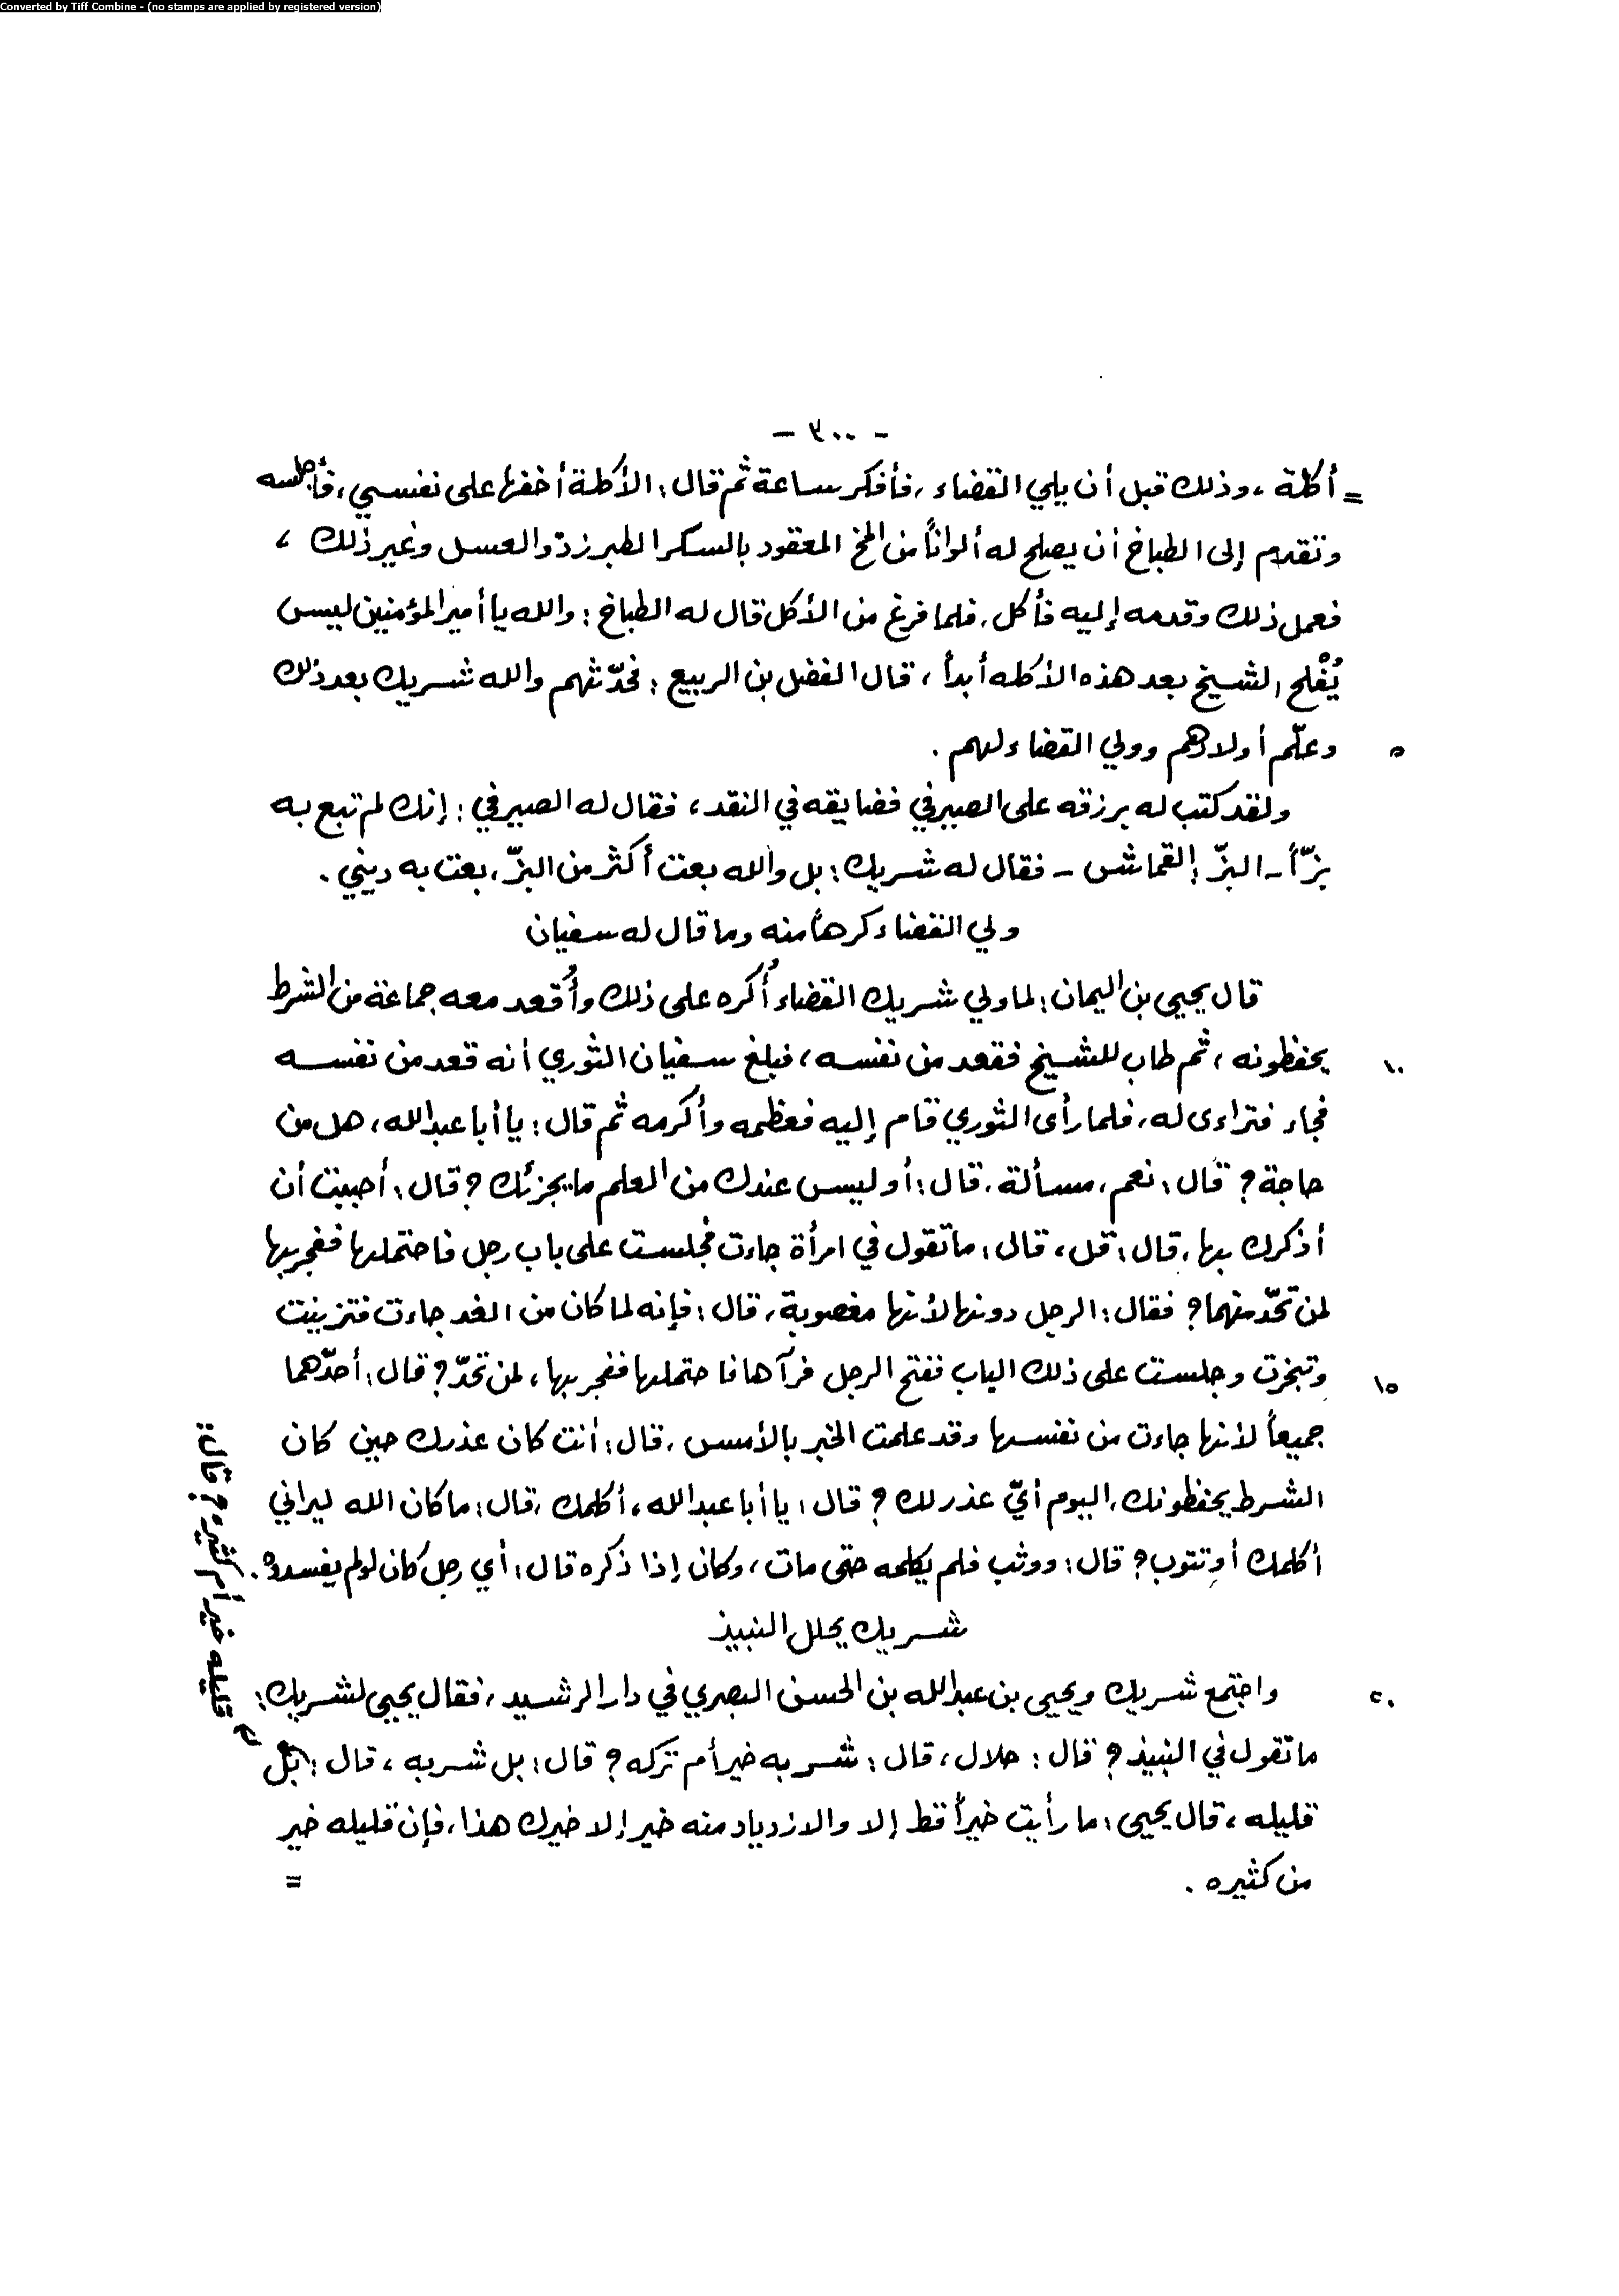 Converted by Tiff Combine - (no stamps are applied by registered version)
- ٣٠٠ -
= أكلة ، وذلك قبل أن يلي القضاء ، فأفكر ساعة ثم قال : الأكلة أخفها على نفسي ، فأجلسه
وتقدم إلى الطباخ أن يصلح له ألواناً من المخ المعقود بالسكر الطبرزدّ والعسل وغير ذلك ،
فعمل ذلك وقدمه إليه فأكل ، فلما فرغ من الأكل قال له الطباخ : والله يا أمير المؤمنين ليس
يُفْلح الشيخ بعد هذه الأكله أبداً ، قال الفضل بن الربيع : فحدّثهم والله شريك بعد ذلك
٥ وعلّم أولادهم وولي القضاء لهم .
ولقد كتب له برزقه على الصيرفي فضايقه في النقد ، فقال له الصيرفي : إنك لم تبع به
بزّاً - البزّ : القماش - فقال له شريك : بل والله بعت أكثر من البزّ ، بعت به ديني .
ولي القضاء كرهاً منه وما قال له سفيان
قال يحيى بن اليمان : لما ولي شريك القضاء أُكره على ذلك وأُقعد معه جماعة من الشرط
١٠ يحفظونه ، ثم طاب للشيخ فقعد من نفسه ، فبلغ سفيان الثوري أنه قعد من نفسه
فجاء فتراءى له ، فلما رأى الثوري قام إليه فعظمه وأكرمه ثم قال : يا أبا عبد الله ، هل من
حاجة ؟ قال : نعم ، مسألة ، قال : أو ليس عندك من العلم ما يجزئك ؟ قال : أحببت أن
أذكرك بها ، قال : قل ، قال : ما تقول في امرأة جاءت فجلست على باب رجل فاحتملها ففجر بها
لمن تحدّ منهما ؟ فقال : الرجل دونها لأنها مغصوبة ، قال : فإنه لما كان من الغد جاءت فتزينت
١٥ وتبخرت وجلست على ذلك الباب ففتح الرجل فرآها فاحتملها ففجر بها ، لمن تحدّ ؟ قال : أحدّهما
جميعاً لأنها جاءت من نفسها وقد علمت الخبر بالأمس ، قال : أنت كان عذرك حين كان
الشرط يحفظونك ، اليوم أيّ عذر لك ؟ قال : يا أبا عبد الله ، أكلمك ، قال : ما كان الله ليراني
أكلمك أو تتوب ؟ قال : ووثب فلم يكلمه حتى مات ، وكان إذا ذكره قال : أي رجل كان لو لم يفسدوه .
شريك يحلل النبيذ
٢٠ واجتمع شريك ويحيى بن عبد الله بن الحسن البصري في دار الرشيد ، فقال يحيى لشريك :
ما تقول في النبيذ ؟ قال : حلال ، قال : شربه خير أم تركه ؟ قال : بل شربه ، قال : بل
قليله خير أم كثيره ؟ قال :
قليله ، قال يحيى : ما رأيت خيراً قط إلا والازدياد منه خير إلا خيرك هذا ، فإن قليله خير
من كثيره . =